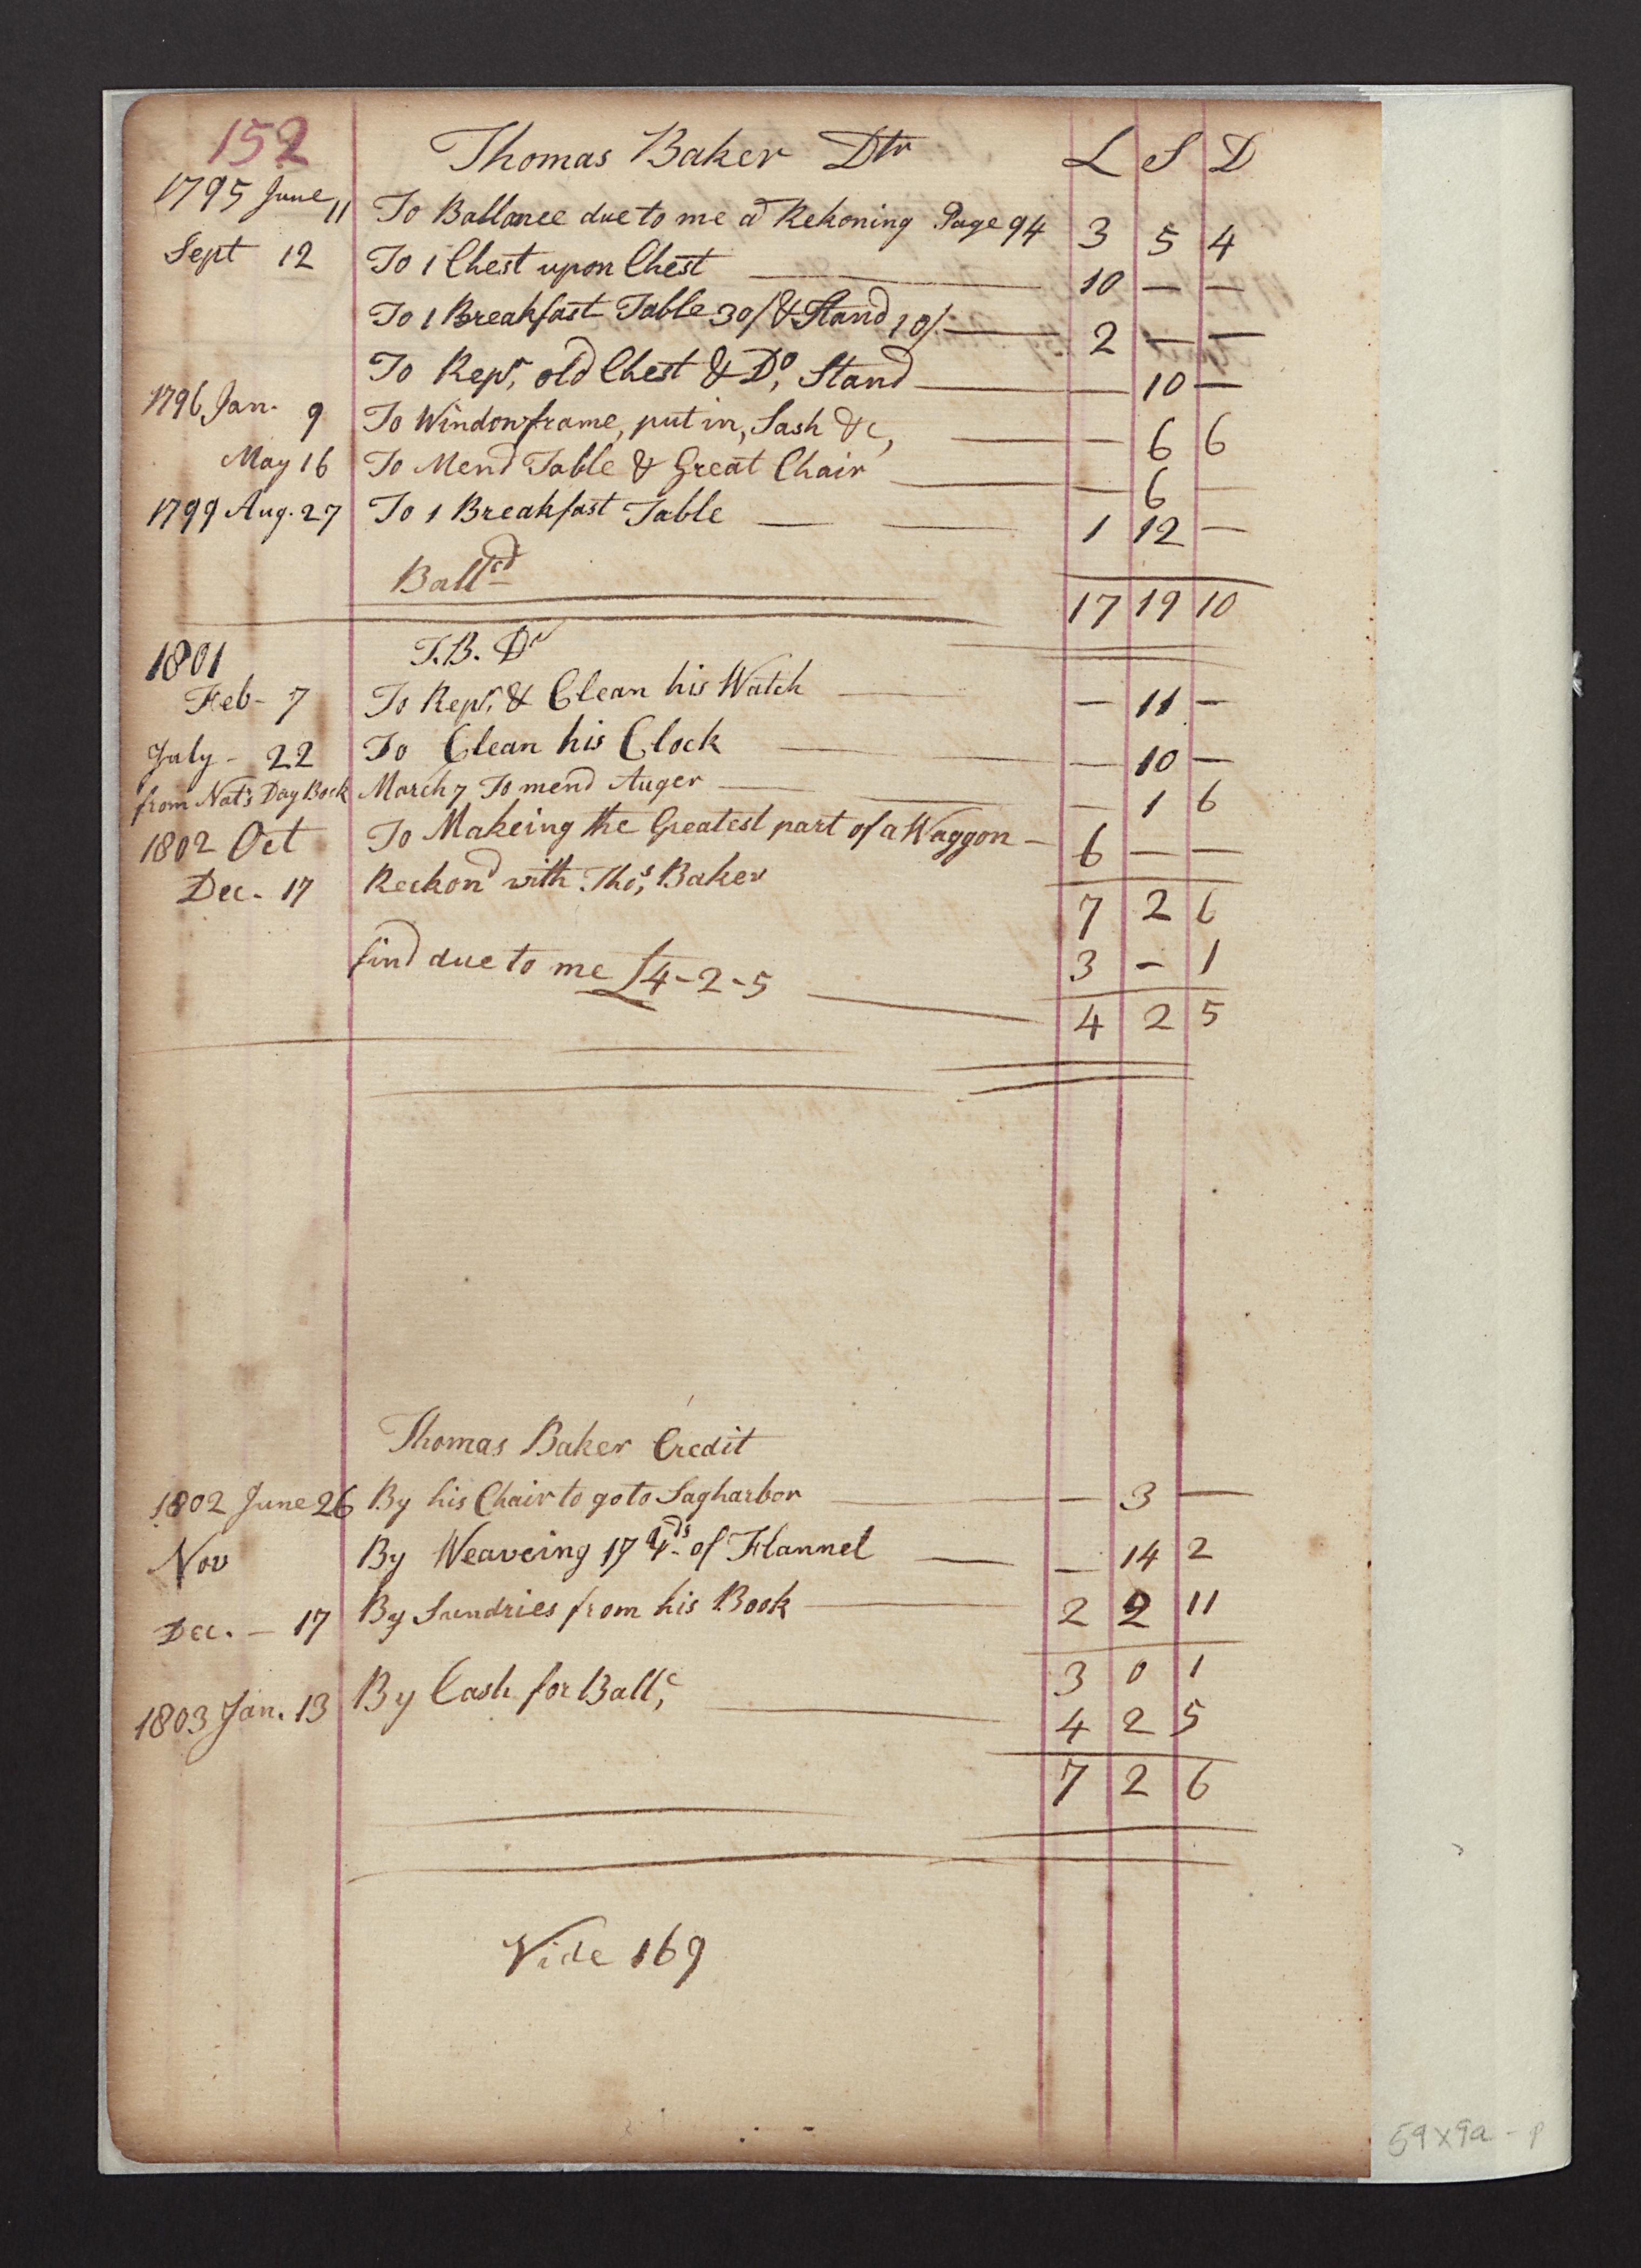 152 Thomas Baker Dtr L S D
1795 June 11 To Ballance due to me a Rekoning Page 94 3 5 4
Sept 12 To 1 Chest upon Chest 10 — —
To 1 Breakfast Table 30/ & Stand 10/ 2 — —
To Repr, old Chest & Do, Stand — 10 —
1796 Jan. 9 To Windowframe, put in, Sash &c, — 6 6
May 16 To Mend Table & Great Chair — 6 —
1799 Aug. 27 To 1 Breakfast Table 1 12 —
Balld 17 19 10
1801 T.B. Dr
Feb - 7 To Repr, & Clean his Watch — 11 —
July - 22 To Clean his Clock — 10 —
from Nat's Day Book March 7 To mend Auger — 1 6
1802 Oct To Makeing the Greatest part of a Waggon - 6 — —
Dec. 17 Reckond with Thos, Baker 7 2 6
3 - 1
find due to me £4-2-5 4 2 5
Thomas Baker Credit
1802 June 26 By his Chair to go to Sagharbor — 3 —
Nov By Weaveing 17 Yds of Flannel — 14 2
Dec. - 17 By Sundries from his Book 2 2 11
3 0 1
1803 Jan. 13 By Cash for Ballc, 4 2 5
7 2 6
Vide 169
59x9a - p